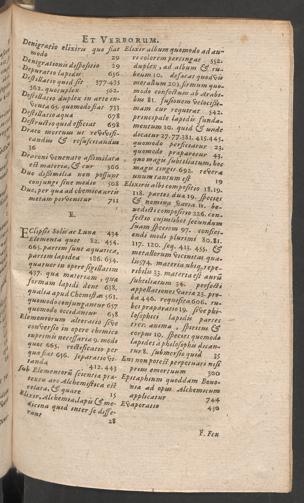 ET VERBORUM.
Denigratio elixiris quo fiat
modo 29
Denigrationis dispositio 29
Depuratio lapidis 636
Destillatio quid sit 377.435
562. quotuplex 562.
Destillatio duplex in arte
Veneris. quomodo fiat 733
Destillatio aqua 678
Destructio quid efficiat 698
Draco mortuus ut
36
Draconi venenato assimilatur
est materia, & cur 306
Duo dissimilia non possunt
conjungi sine medio 508
Dux, per qua ad chemiæ artis
metam pervenitur 711
E.
Eclipsis Solis ac Lunæ 434
Elementa quot 82. 454.
665. partim sunt aquatica,
partim lapidea 186. 634.
quatuor in opere
437. qua materiam, qua
formam lapidi dent 638
qualia apud Chemistas 561.
quomodo conjungantur 637
quomodo occidantur 638
Elementorum alteratio sive
conversio in opere chemico
supremis necessaria 9. modo
quot 663. rectificatio per
quæ fiat 636. separatio
tanda 412. 443
Sub Elementorum scientia pro-
tracta ars Alchemistica est
relata, & quare 15
Elixir, Alchemia, lapis & me-
dicina quid inter se diffe-
rant 28
Elixir album quomodo ad au-
re colorem pertingat 552.
duplex, ad album & ru-
beum 10.
metallum 203. firmum quo-
modo confectum ab Arabi-
bus 81. fusionem velocissi-
mam cur requirat 342.
principale lapidis funda-
mentum 20. quid & unde
dicatur 27. 77. 381. 415. 445.
quomodo perficiatur 23.
quomodo præparetur 43.
quo magis subtiliatum, hoc
magis tinget 692. revera
unum tantum est 19
Elixiris albi compositio 18.19.
118. partes duæ 19. species
& nomina varia 11. be-
nedicti compositio 226. con-
fectio cujuslibet secundum
suam speciem 97. confici-
endi modi plurimi 80. 81.
117. 120. seq. 433. 455. &
metallorum vicinitas qua-
lis 74. materia ubiq; repe-
ribilis 33. materia est auri
subtiliatum 34. perfecti
appellationes varia 25. pro-
ba 446. requisita 606. ru-
bei præparatio 19. sive phi-
losophici lapidis partes
tres: anima, spiritus &
corpus 10. species quomodo
lapides à philosophis dican-
tur 8. submersio quid 25
Ens non potest perpetuari nisi
prius emoriatur 500
Epitaphium quoddam Bono-
nia ad opus Alchemicum
applicatur 744
Evaporatio 430
F. Fen